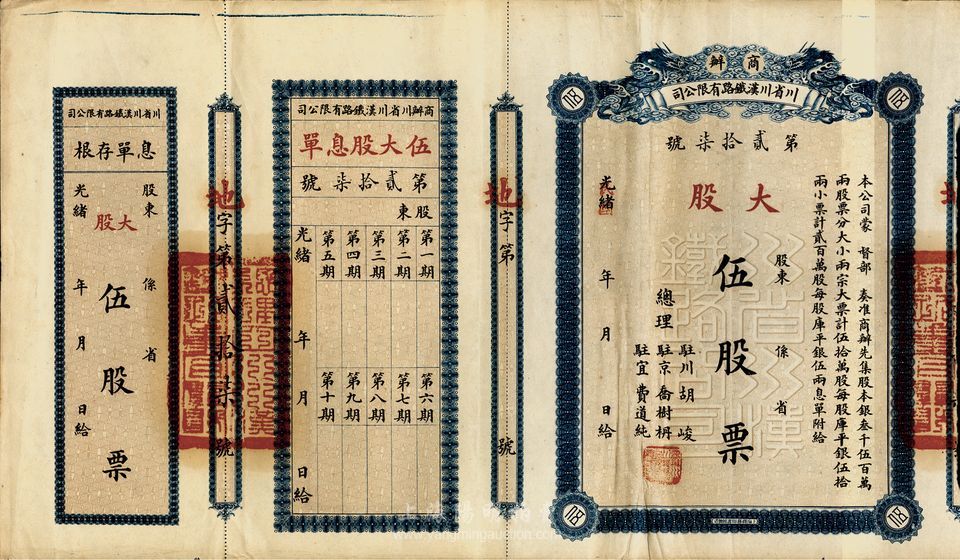 商辦
川省川漢鐵路有限公司
第貳拾柒號
本公司蒙 督部 奏准商辦先集股本銀叁千伍百萬
兩股票分大小兩宗大票計伍拾萬股每股庫平銀伍拾
兩小票計貳百萬股每股庫平銀伍兩息單附給
大股
股東 係 省
伍股票
總理
駐川胡峻
駐京喬樹枬
駐宜費道純
光緒 年 月 日給
川省川漢鐵路公司
地字第 號
商辦川省川漢鐵路有限公司
伍大股息單
第貳拾柒號
股東
第一期
第二期
第三期
第四期
第五期
第六期
第七期
第八期
第九期
第十期
光緒 年 月 日給
地字第貳拾柒號
川省川漢鐵路有限公司
息單存根
股東 係 省
大股
伍股票
光緒 年 月 日給
www.yangmingauction.com